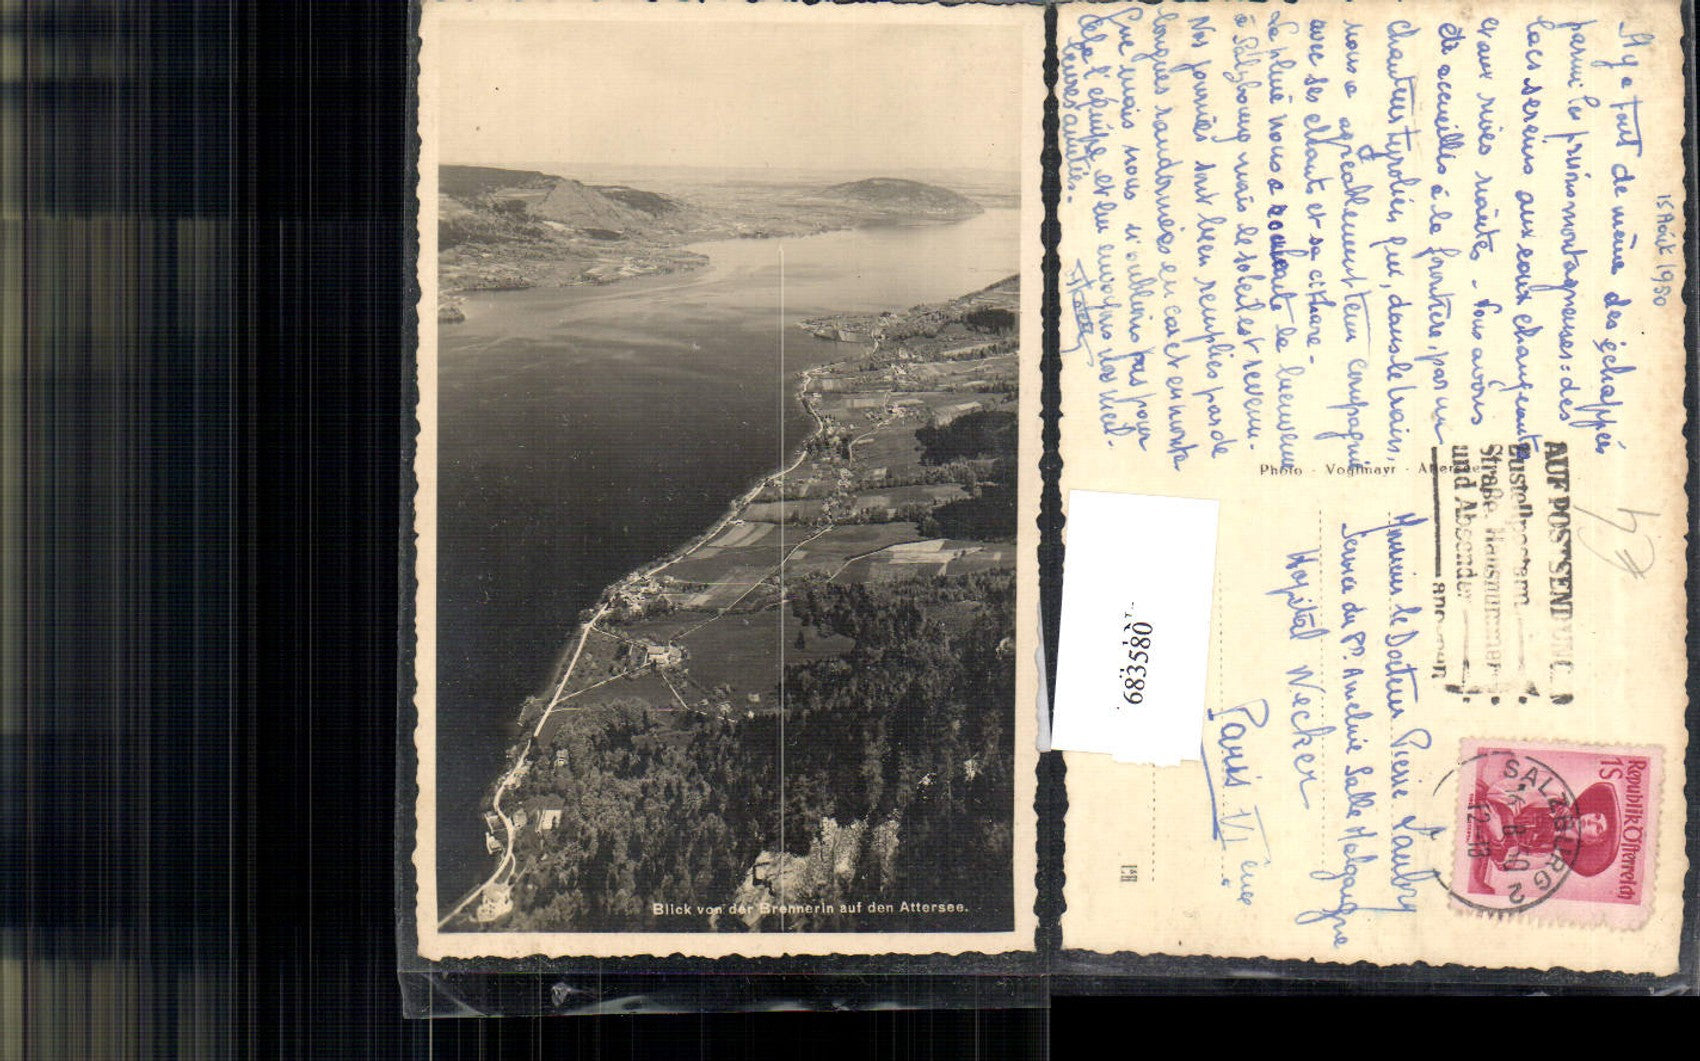 Blick von der Brennerin auf den Attersee.
15 Août 1950
Il y a tout de même des échappées
parmi les prisons montagneuses: des
lacs sereins aux eaux changeantes
et aux rives riantes - Nous avons
été accueillis à la frontière, par un
chanteur tyrolien, qui, dans le train,
nous a agréablement tenu compagnie
avec ses chants et sa cithare -
La pluie nous a souhaité la bienvenue
à Salzbourg mais le soleil est revenu -
Nos journées sont bien remplies par de
longues randonnées en car et
Que mais nous n'oublions pas pour
cela l'équipe et lui envoyons nos meil-
leures amitiés.
Photo - Voglmayr - Attersee
683580
AUF POSTSENDUNGEN
Zustellpostamt
Straße, Hausnummer
und Absender
angeben
Monsieur le Docteur Pierre
Service du Pr. Ameline Salle Malgaigne
Hôpital Necker
Paris VI ème
L&H
Republik Österreich
1S
SALZBURG 2